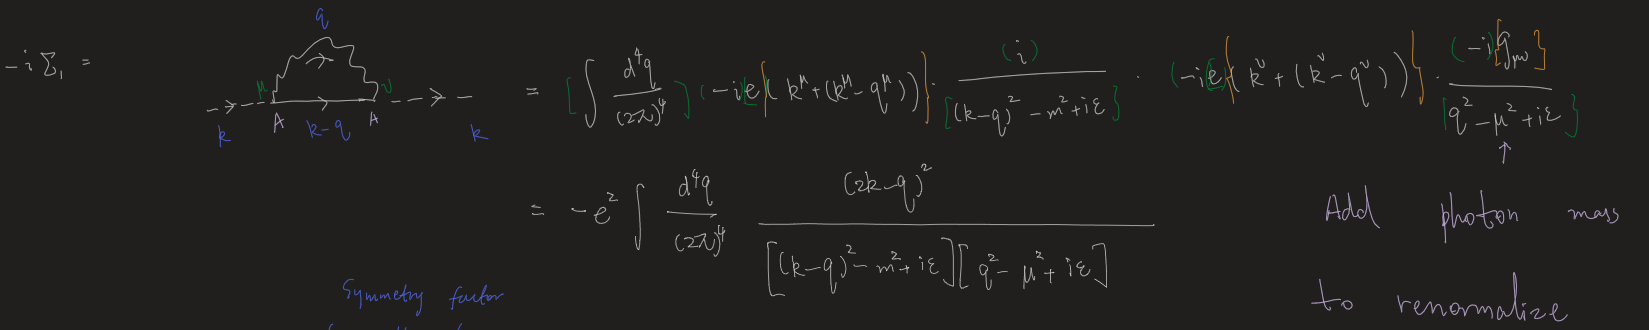 -i Σ₁ = = [∫ d⁴q/(2π)⁴] (-ie{(k^μ+(k^μ-q^μ))} · (i)/[(k-q)²-m²+iε] · (-ie{(k^ν+(k^ν-q^ν))} · (-i)[g_μν]/[q²-μ²+iε]
q
μ ν
k A k-q A k
↑
= -e² ∫ d⁴q/(2π)⁴ (2k-q)²/[(k-q)²-m²+iε][q²-μ²+iε]
Add photon mass
to renormalize
Symmetry factor